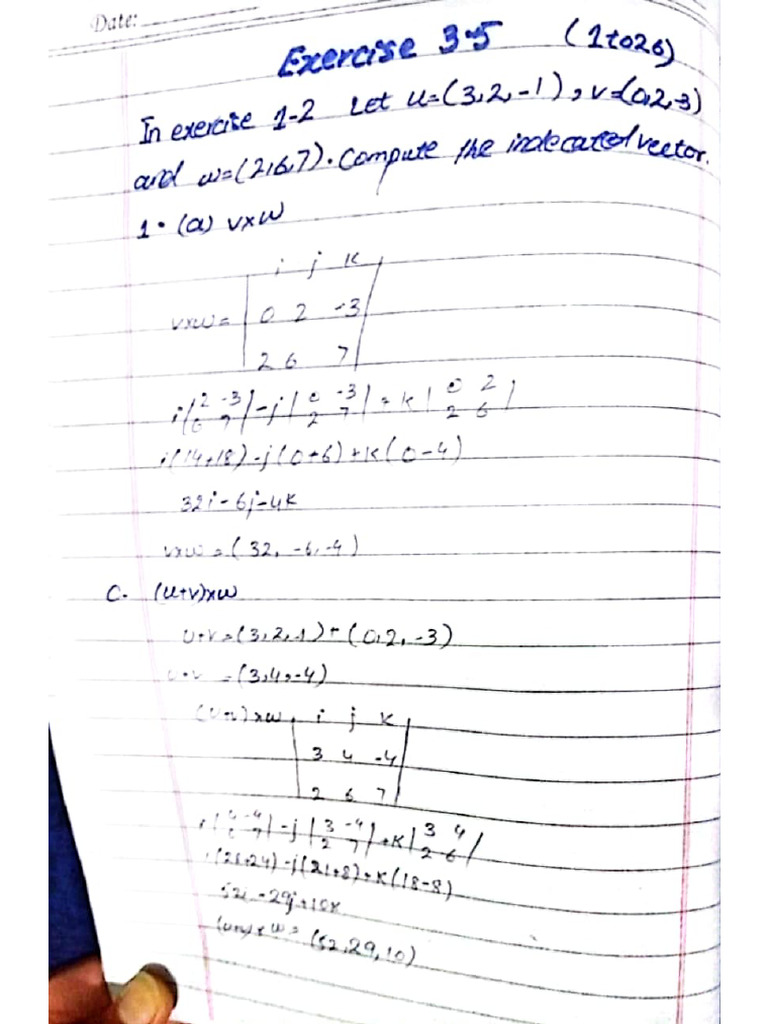 Date:
Exercise 3.5 (1 to 26)
In exercite 1-2 Let u=(3,2,-1), v=(0,2,-3)
and w=(2,6,7). Compute the indecated vector.
1. (a) v×w
i j k
v×w = 0 2 -3
2 6 7
i|2 -3| - j|0 -3| + k|0 2|
6 7 2 7 2 6
i(14+18) - j(0+6) + k(0-4)
32i - 6j - 4k
v×w = (32, -6, -4)
C. (u+v)×w
u+v = (3,2,-1) + (0,2,-3)
u+v = (3,4,-4)
(u+v)×w i j k
3 4 -4
2 6 7
i|4 -4| - j|3 -4| + k|3 4|
6 7 2 7 2 6
i(28+24) - j(21+8) + k(18-8)
52i - 29j + 10k
(u+v)×w = (52, 29, 10)